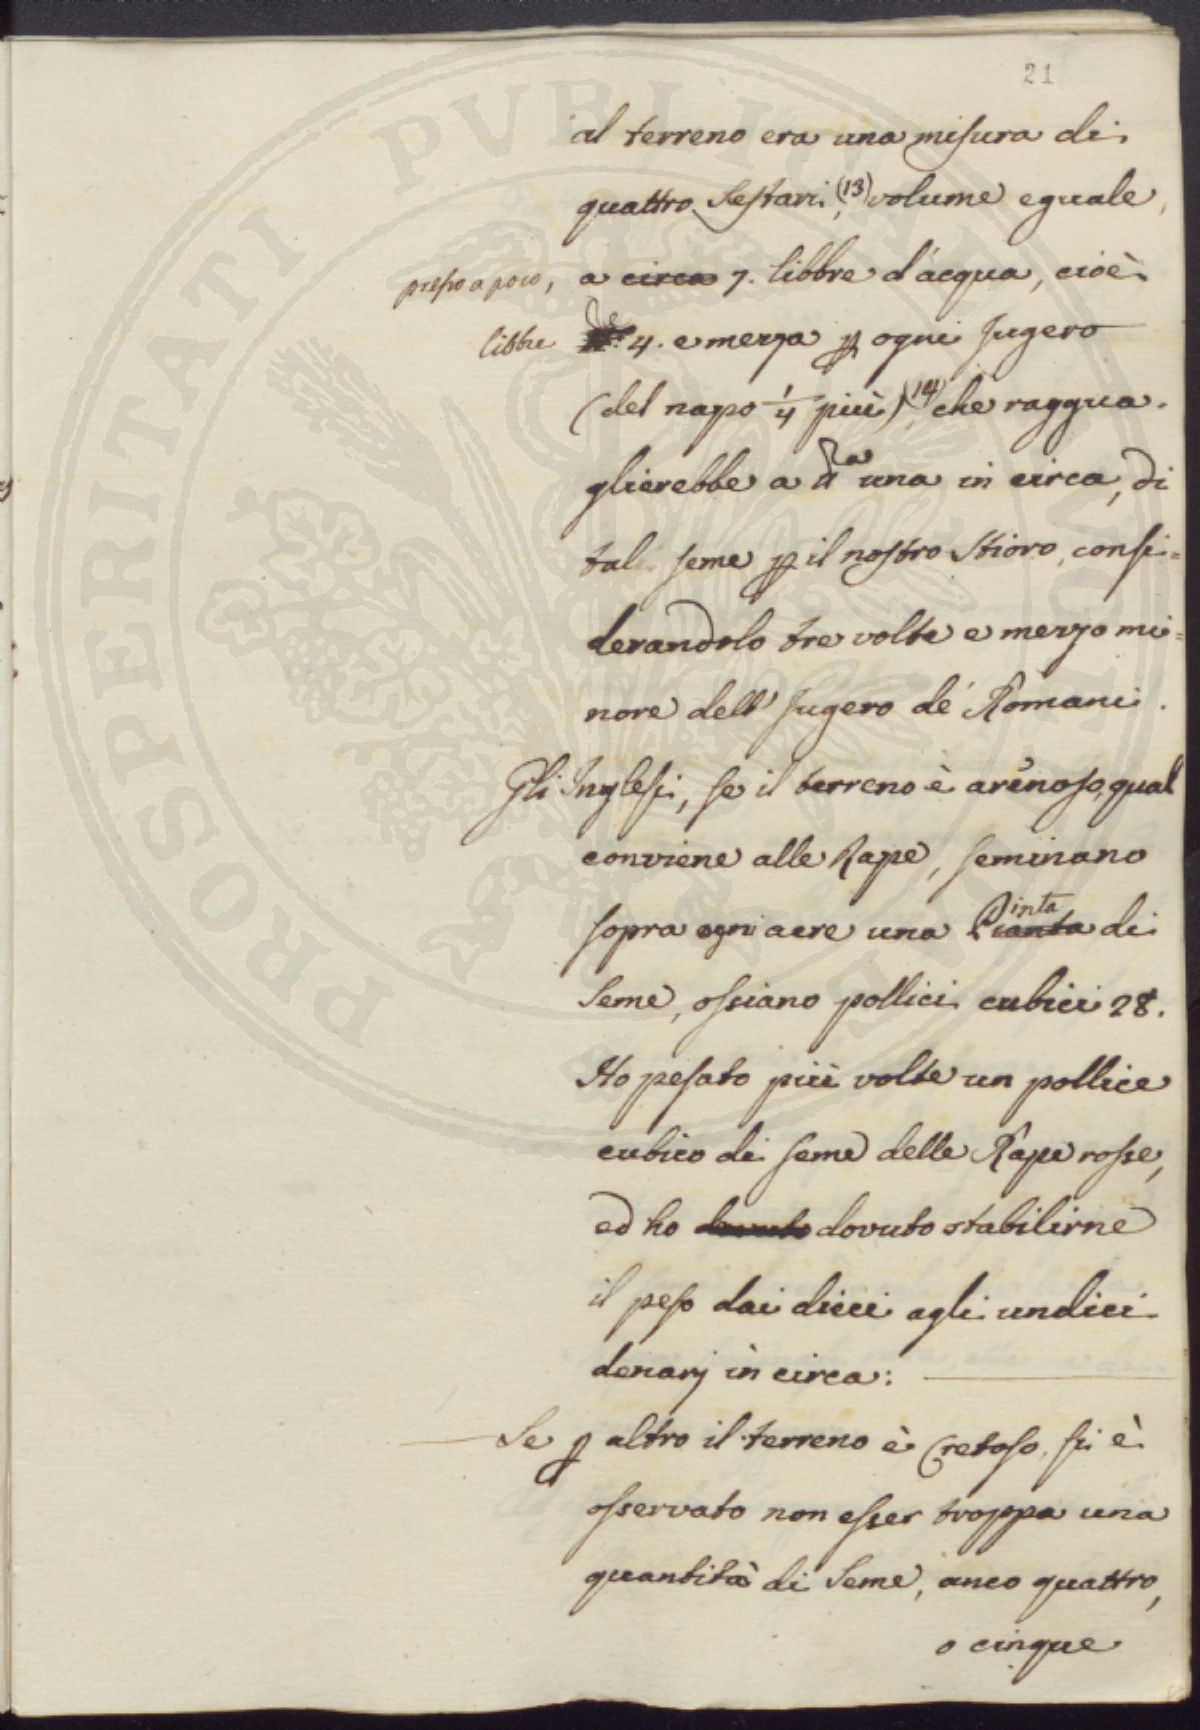 21
al terreno era una misura di
quattro Sestari, (13) volume eguale,
presso a poco, a circa 7. libbre d'acqua, cioè
libbre 4. e mezza p ogni Jugero
(del napo 1/4 più), (14) che raggua.
glierebbe a una in circa, di
tal seme p il nostro Stioro, consi=
derandolo tre volte e mezzo mi=
nore dell' Jugero de' Romani.
Gli Inglesi, se il terreno è arenoso, qual
conviene alle Rape, seminano
sopra ogni acre una Pianta inta di
Seme, ossiano pollici cubici 28.
Ho pesato più volte un pollice
cubico di seme delle Rape rosse,
ed ho dovuto dovuto stabilirne
il peso dai dieci agli undici
denarj in circa:
Se p altro il terreno è Cretoso, si è
osservato non esser troppa una
quantità di Seme, anco quattro,
o cinque
PROSPERITATI PUBLICAE